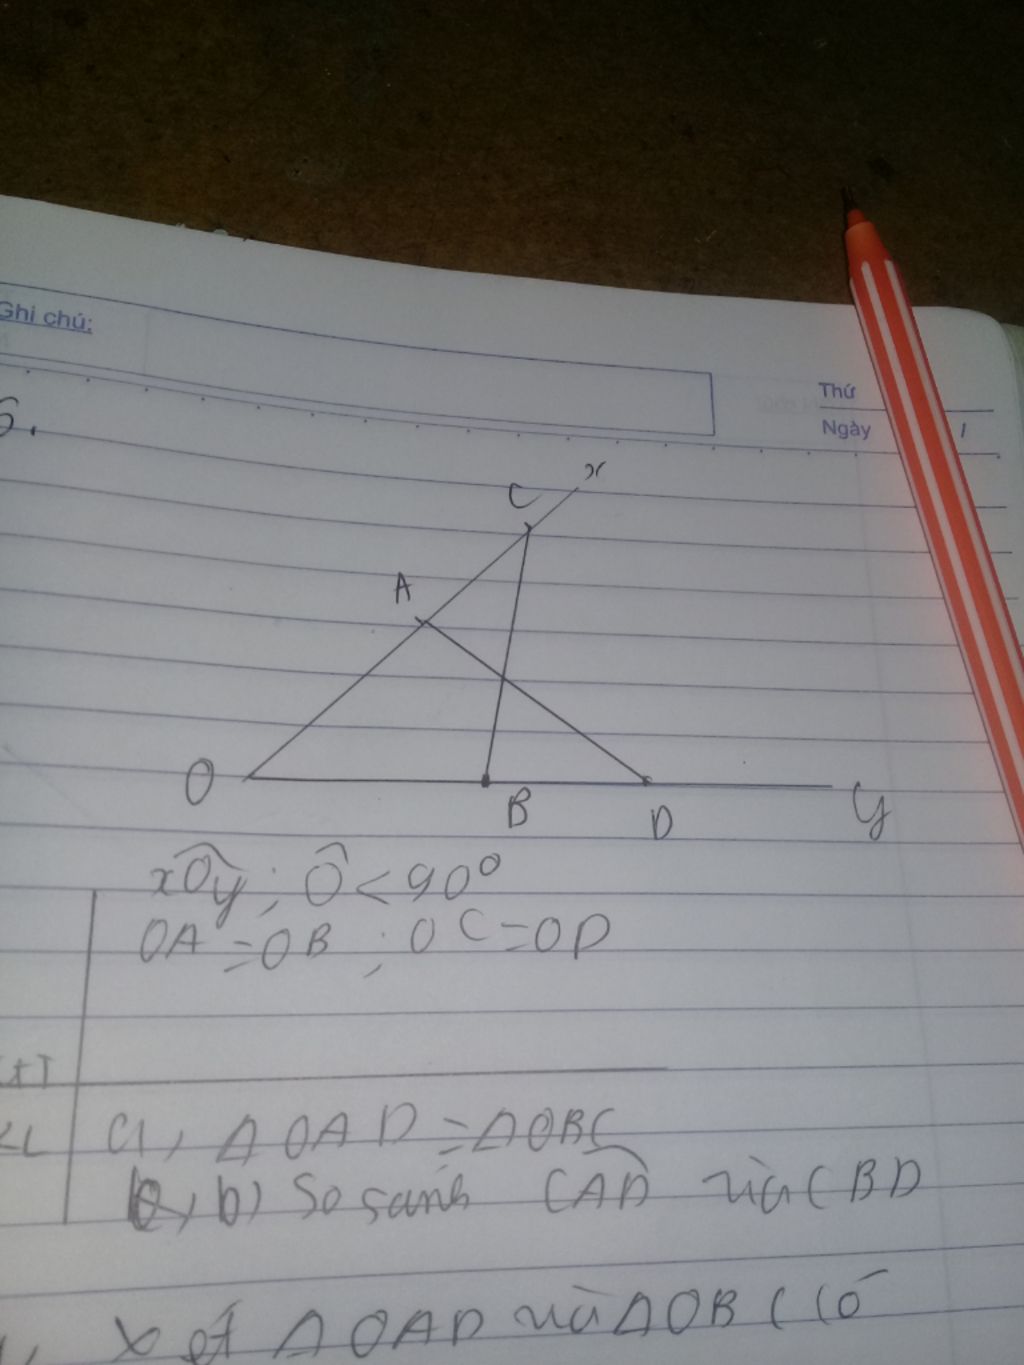 Ghi chú:
Thứ
Ngày /
6.
x
C
A
O
B
D
y
xOy ; O < 90°
OA = OB ; OC = OD
GT
KL a, ΔOAD = ΔOBC
b) So sánh CAD và CBD
Xét ΔOAD và ΔOBC có